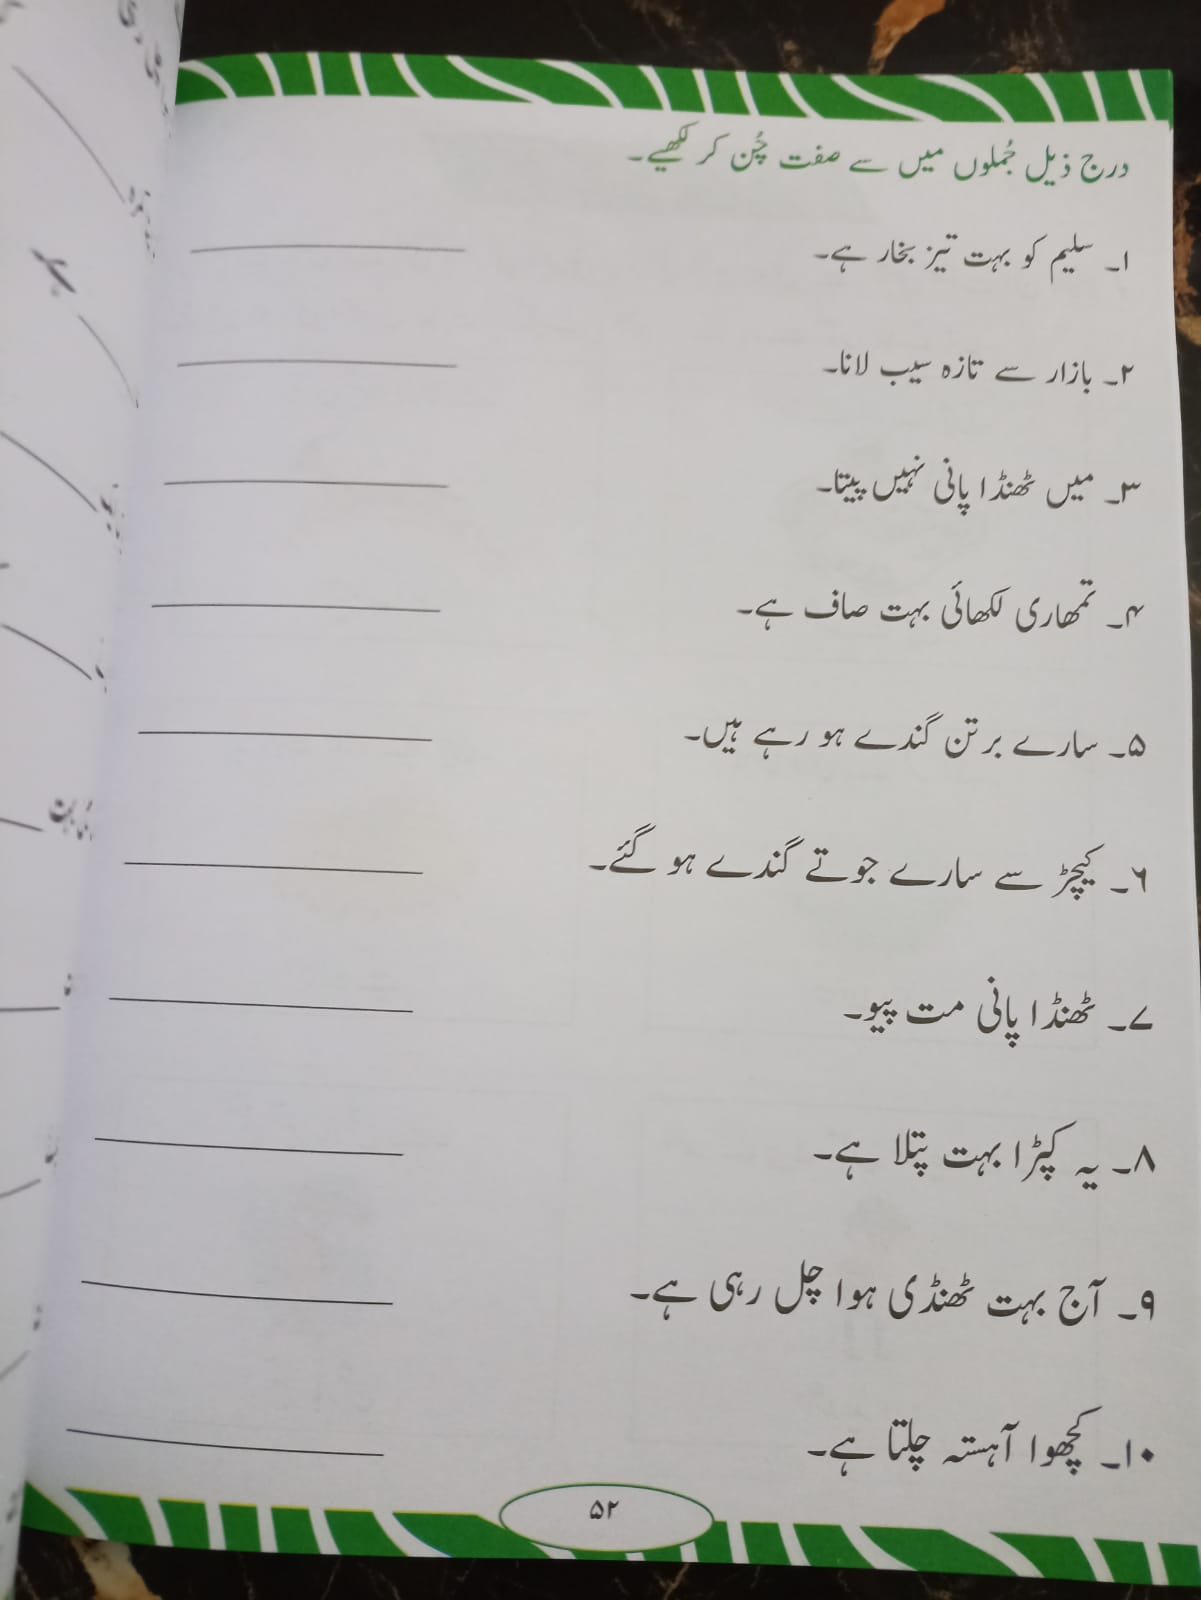 درج ذیل جُملوں میں سے صفت چُن کر لکھیے۔
۱۔ سلیم کو بہت تیز بخار ہے۔
۲۔ بازار سے تازہ سیب لانا۔
۳۔ میں ٹھنڈا پانی نہیں پیتا۔
۴۔ تمھاری لکھائی بہت صاف ہے۔
۵۔ سارے برتن گندے ہو رہے ہیں۔
۶۔ کیچڑ سے سارے جوتے گندے ہو گئے۔
۷۔ ٹھنڈا پانی مت پیو۔
۸۔ یہ کپڑا بہت پتلا ہے۔
۹۔ آج بہت ٹھنڈی ہوا چل رہی ہے۔
۱۰۔ کچھوا آہستہ چلتا ہے۔
۵۲